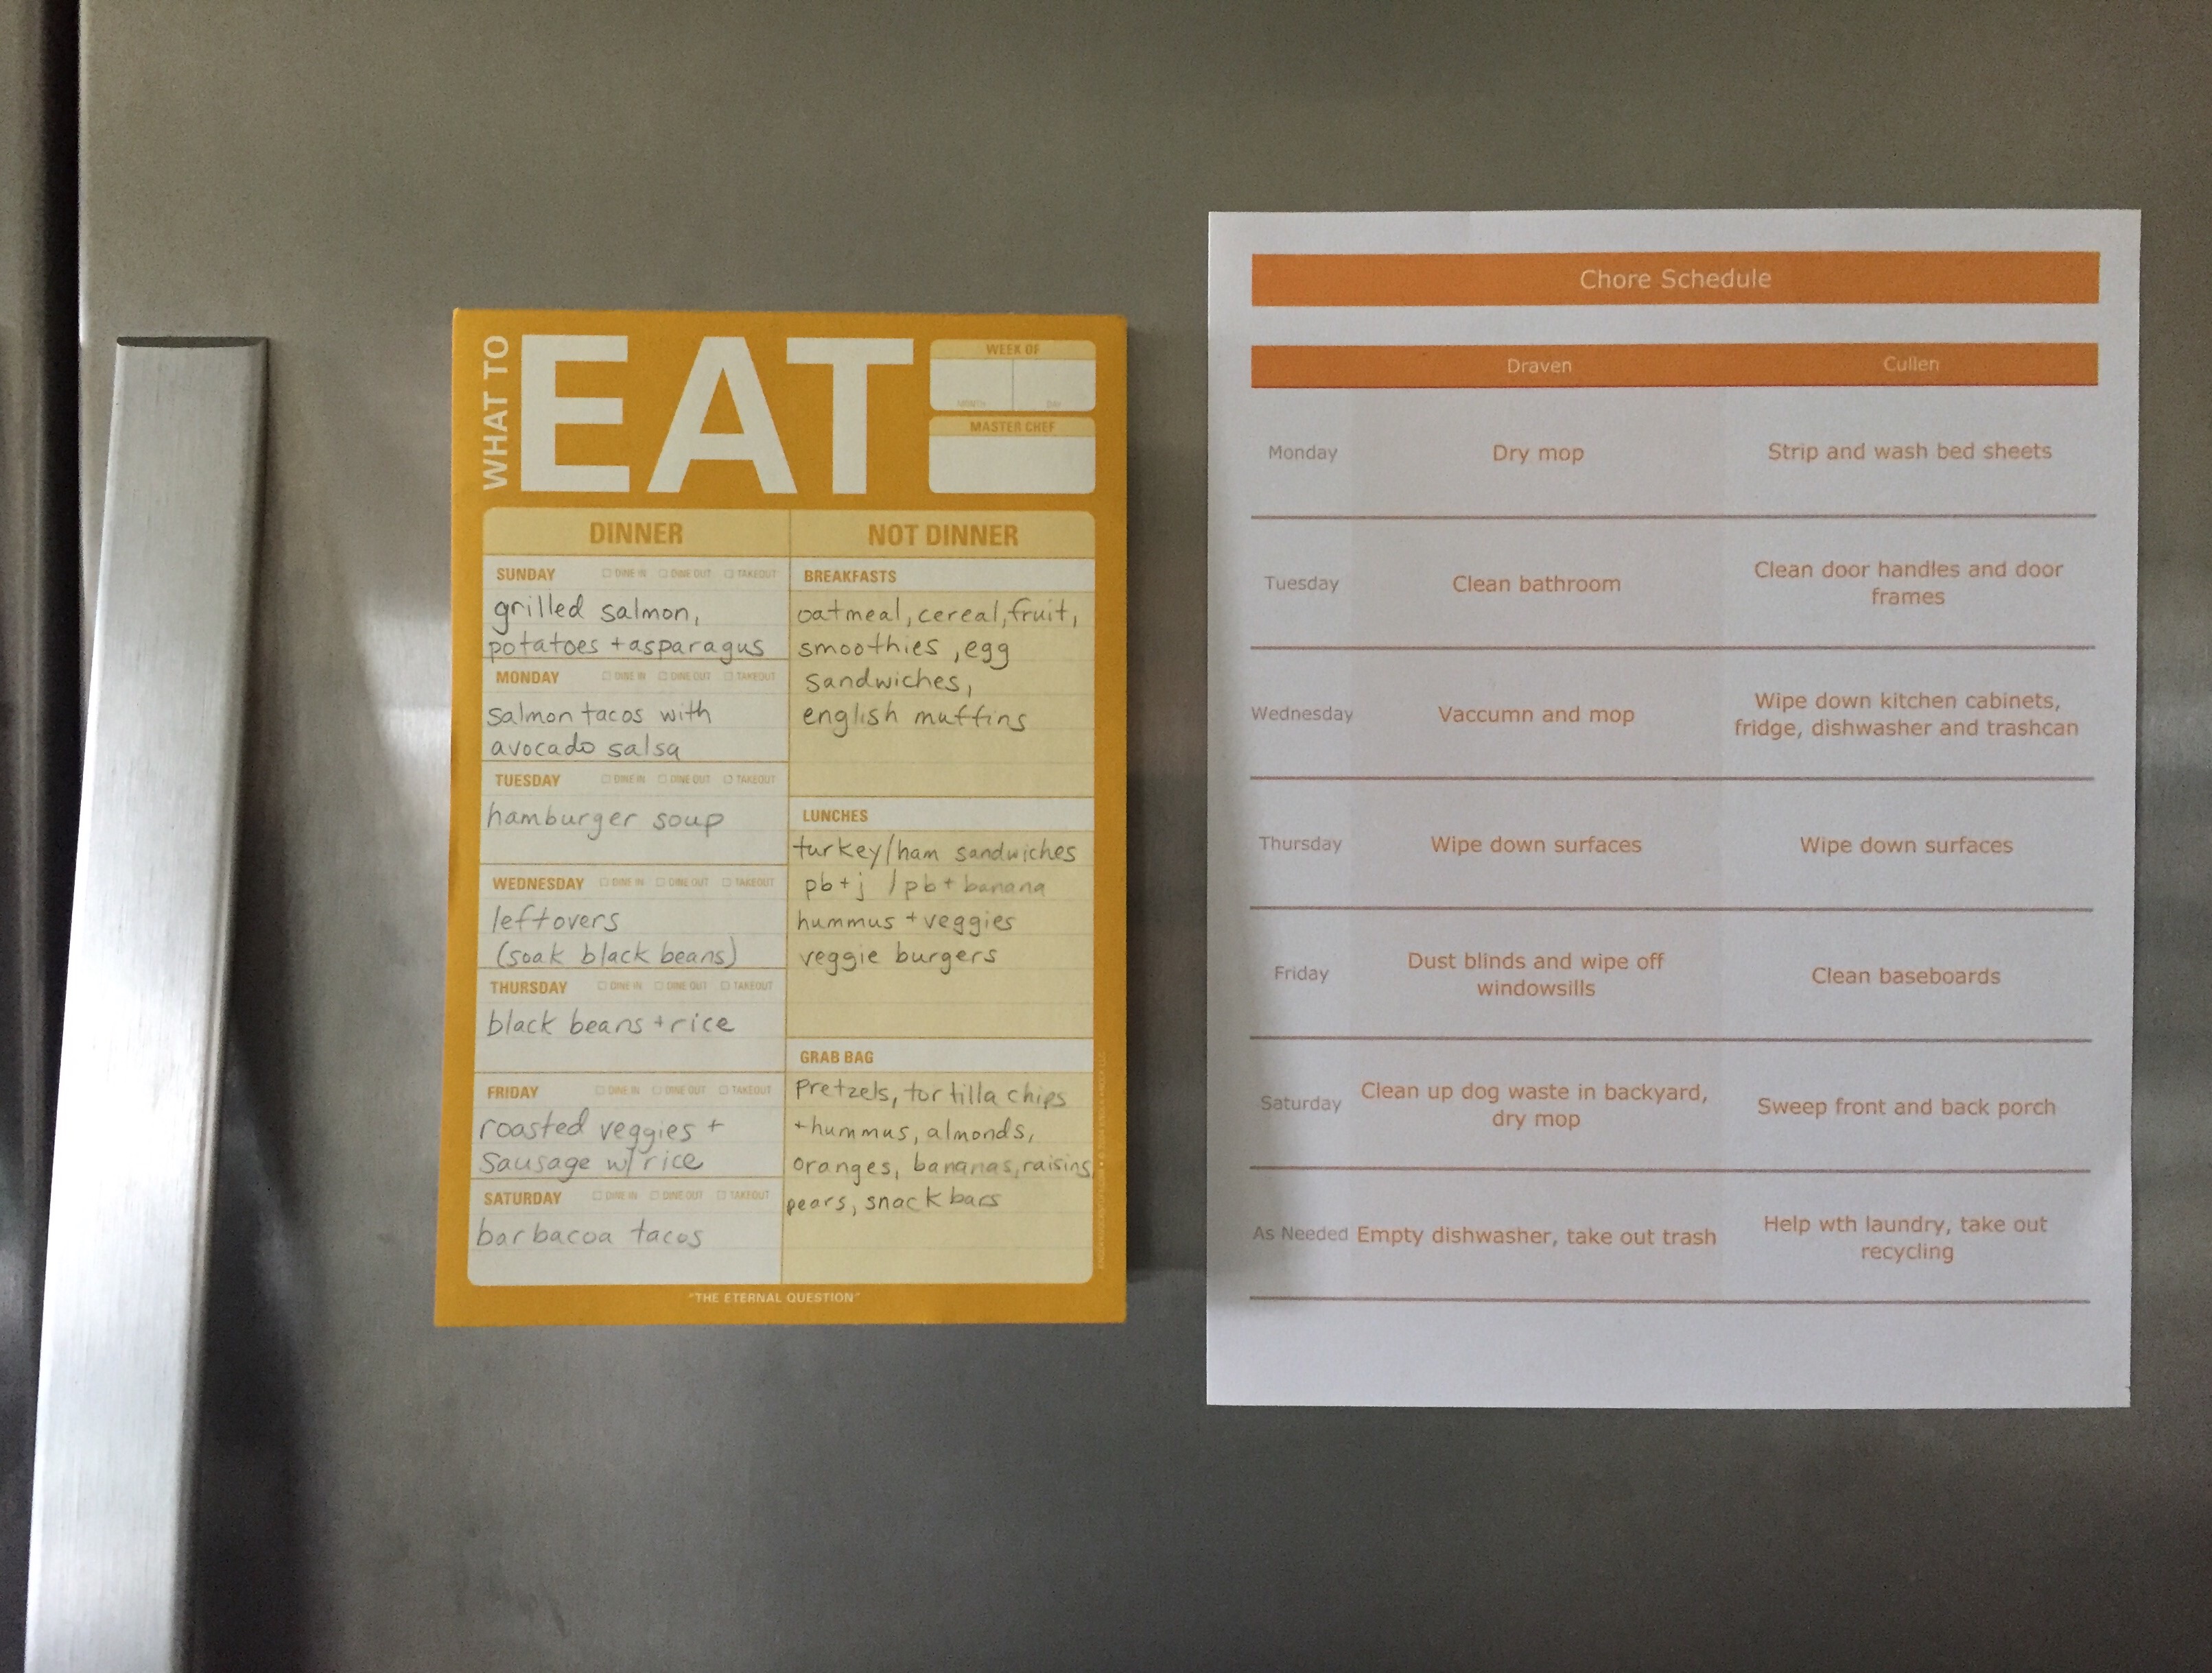 WHAT TO
EAT
WEEK OF
MONTH DAY
MASTER CHEF
DINNER
SUNDAY DINE IN DINE OUT TAKEOUT
grilled salmon,
potatoes + asparagus
MONDAY DINE IN DINE OUT TAKEOUT
salmon tacos with
avocado salsa
TUESDAY DINE IN DINE OUT TAKEOUT
hamburger soup
WEDNESDAY DINE IN DINE OUT TAKEOUT
leftovers
(soak black beans)
THURSDAY DINE IN DINE OUT TAKEOUT
black beans + rice
FRIDAY DINE IN DINE OUT TAKEOUT
roasted veggies +
sausage w/ rice
SATURDAY DINE IN DINE OUT TAKEOUT
barbacoa tacos
NOT DINNER
BREAKFASTS
oatmeal, cereal, fruit,
smoothies, egg
sandwiches,
english muffins
LUNCHES
turkey/ham sandwiches
pb+j / pb + banana
hummus + veggies
veggie burgers
GRAB BAG
pretzels, tortilla chips
+hummus, almonds,
oranges, bananas, raisins,
pears, snack bars
"THE ETERNAL QUESTION"
Chore Schedule
Draven Cullen
Monday Dry mop Strip and wash bed sheets
Tuesday Clean bathroom Clean door handles and door
frames
Wednesday Vaccumn and mop Wipe down kitchen cabinets,
fridge, dishwasher and trashcan
Thursday Wipe down surfaces Wipe down surfaces
Friday Dust blinds and wipe off
windowsills Clean baseboards
Saturday Clean up dog waste in backyard,
dry mop Sweep front and back porch
As Needed Empty dishwasher, take out trash Help wth laundry, take out
recycling